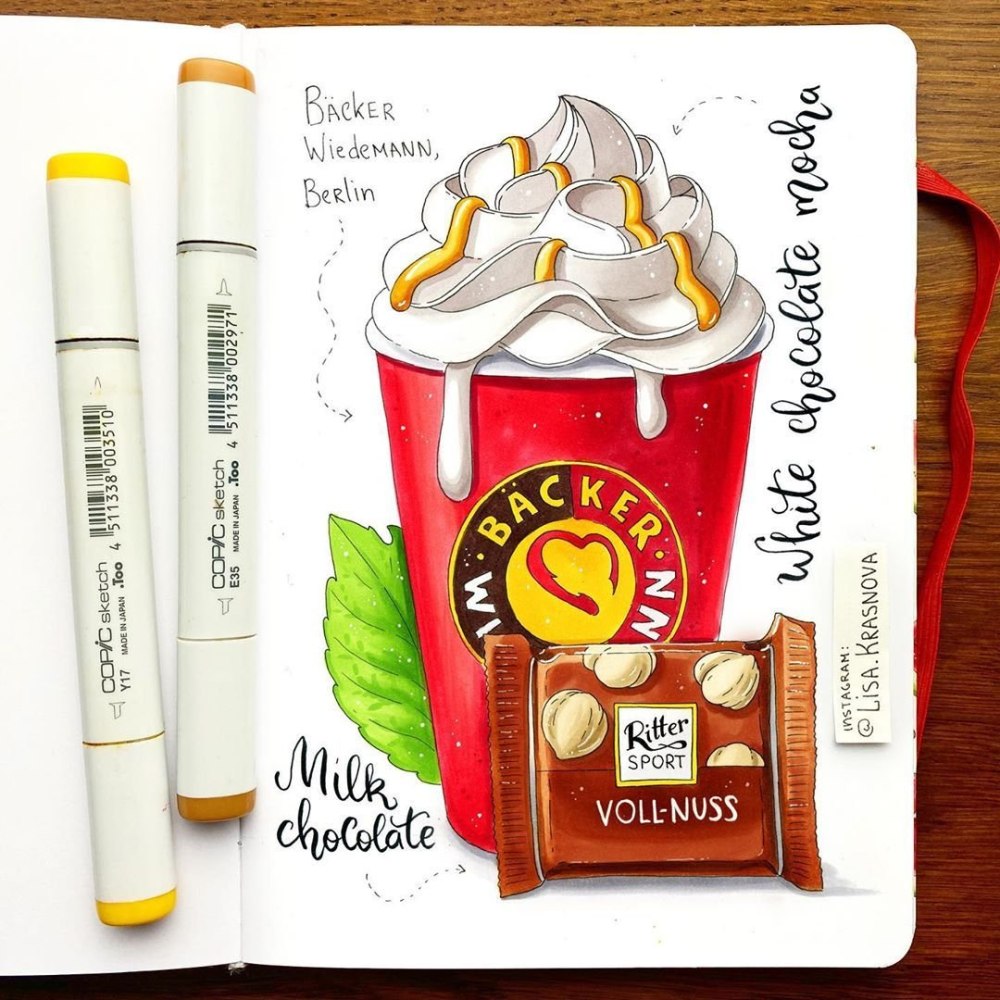 BÄCKER
WIEDEMANN,
Berlin
White chocolate mocha
· BÄCKER ·
WI
NN
Ritter
SPORT
VOLL-NUSS
Milk
chocolate
INSTAGRAM:
@LISA.KRASNOVA
COPIC sketch .Too
MADE IN JAPAN
Y17
4 511338 003510
COPIC sketch .Too
MADE IN JAPAN
E35
4 511338 002971